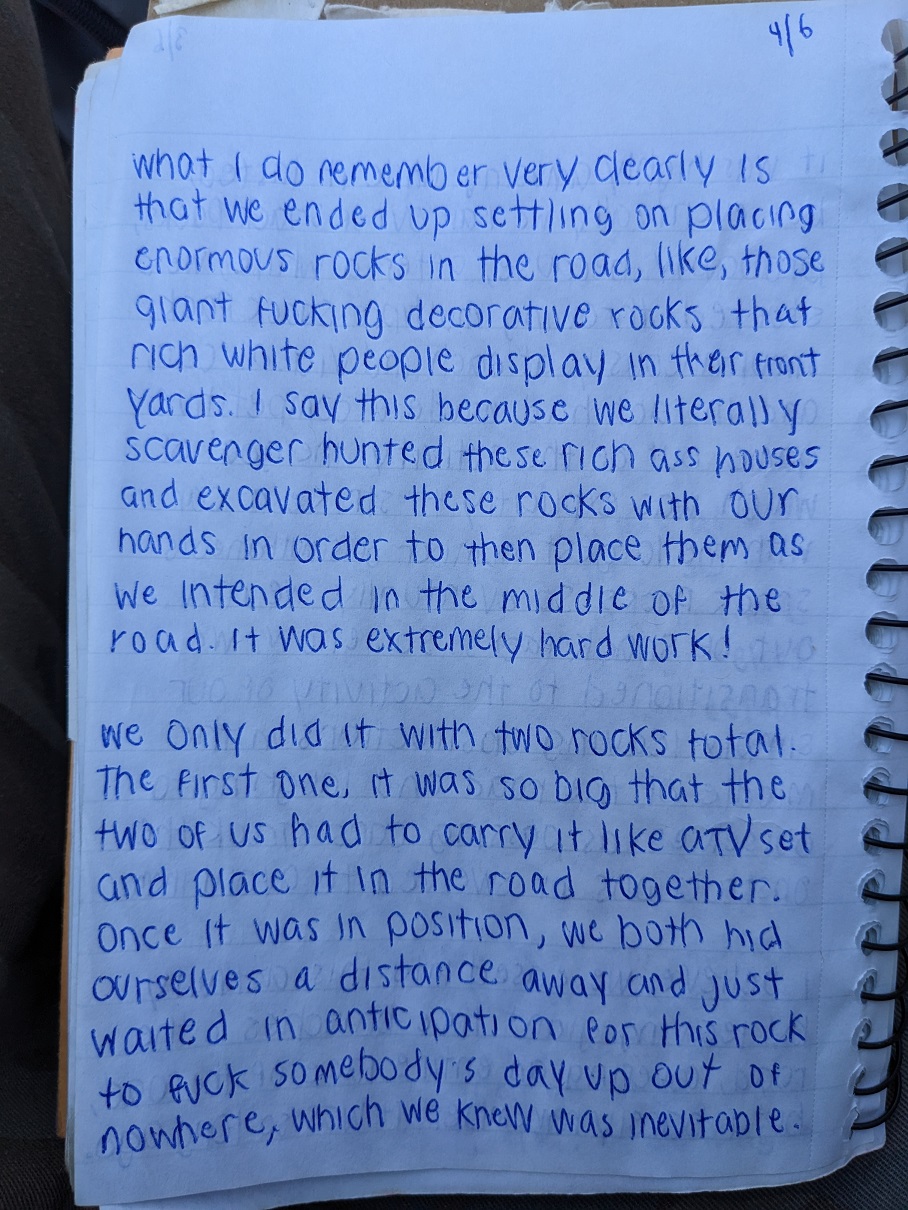 4/6
what I do remember very clearly is
that we ended up settling on placing
enormous rocks in the road, like, those
giant fucking decorative rocks that
rich white people display in their front
yards. I say this because we literally
scavenger hunted these rich ass houses
and excavated these rocks with our
hands in order to then place them as
we intended in the middle of the
road. it was extremely hard work!
we only did it with two rocks total.
The first one, it was so big that the
two of us had to carry it like a TV set
and place it in the road together.
Once it was in position, we both hid
ourselves a distance away and just
waited in anticipation for this rock
to fuck somebody's day up out of
nowhere, which we knew was inevitable.